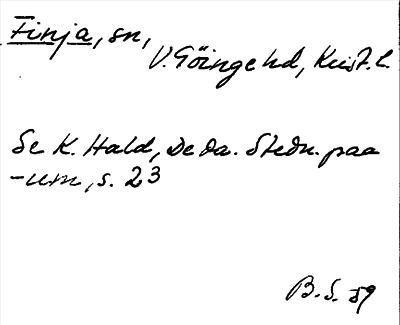 Finja, sn,
V. Göinge hd, Krist. l.
Se K. Hald, De da. Stedn. paa
-um, s. 23
B. S. 59